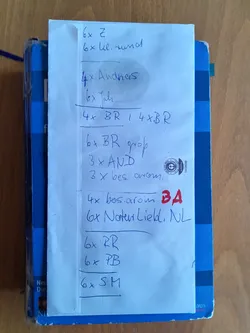 6x Z
6x kl. rund
4x Andreas
6x Ich
4x BR 1 4xBR
6x BR groß
3xAND
3x bes arom.
4x besarom BA
6x Natur Liebl. NL
6x RR
6x PB
6x SM